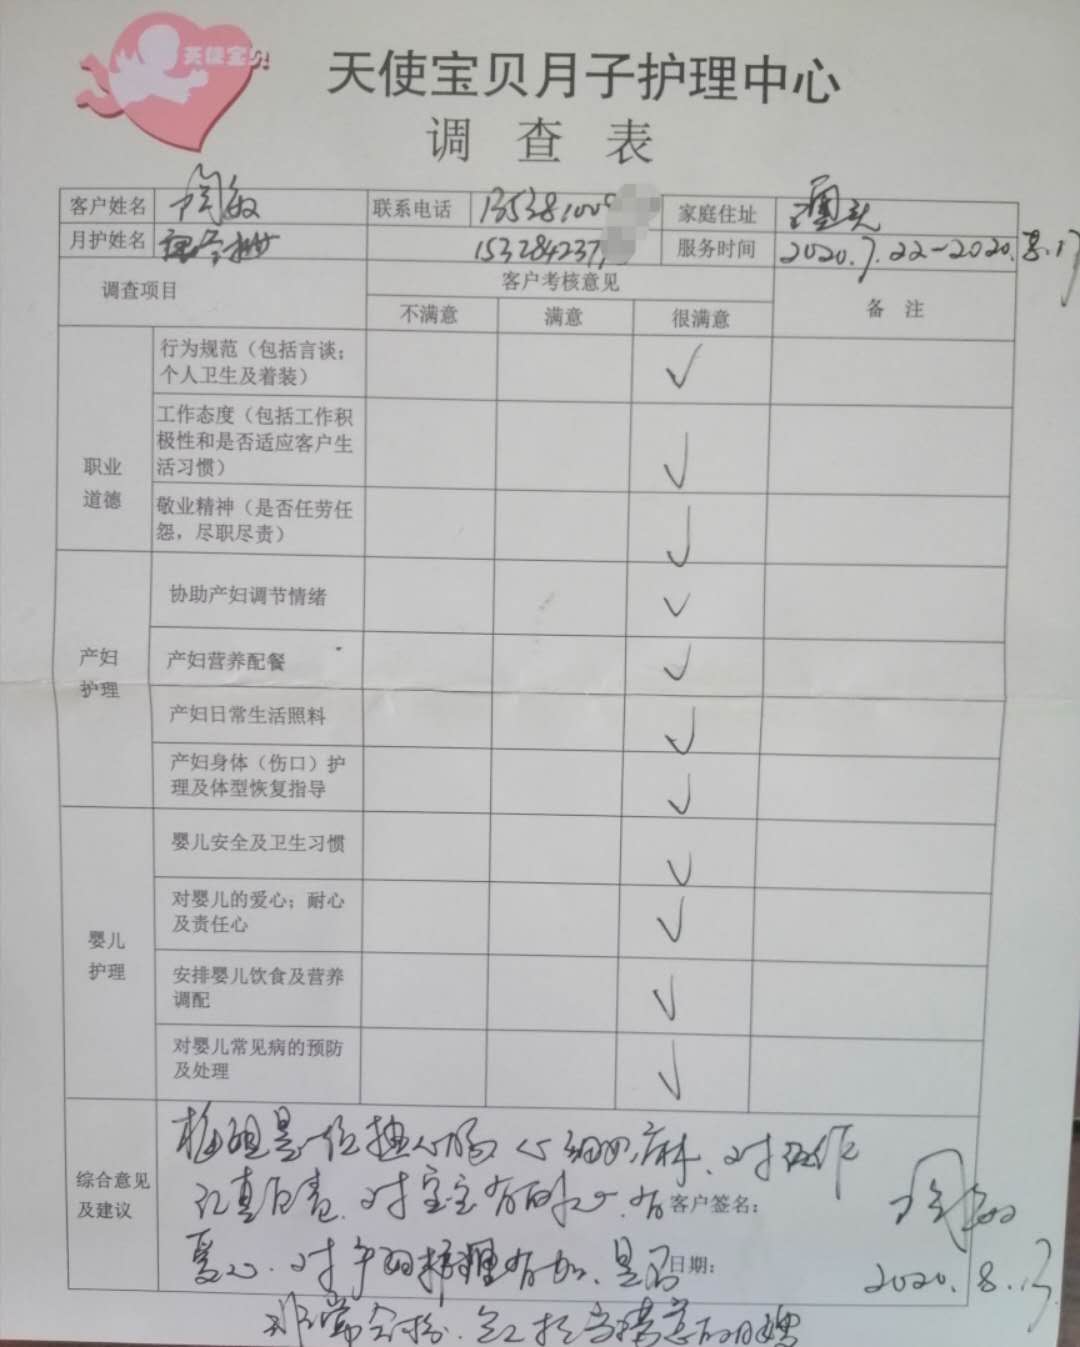 天使宝贝
天使宝贝月子护理中心
调 查 表
客户姓名 陶敏 联系电话 135381009 家庭住址
月护姓名 15328423 服务时间 2020.7.22-2020.8.17
调查项目 客户考核意见 备 注
不满意 满意 很满意
职业
道德
行为规范（包括言谈；
个人卫生及着装） ✓
工作态度（包括工作积
极性和是否适应客户生
活习惯） ✓
敬业精神（是否任劳任
怨，尽职尽责） ✓
产妇
护理
协助产妇调节情绪 ✓
产妇营养配餐 ✓
产妇日常生活照料 ✓
产妇身体（伤口）护
理及体型恢复指导 ✓
婴儿
护理
婴儿安全及卫生习惯 ✓
对婴儿的爱心；耐心
及责任心 ✓
安排婴儿饮食及营养
调配 ✓
对婴儿常见病的预防
及处理 ✓
综合意见
及建议
梅姐是一位热心肠 心细如麻、对工作
认真负责、对宝宝有耐心、有
爱心、对护理有加、是
非常 满意的月嫂
客户签名： 陶敏
日期： 2020.8.17